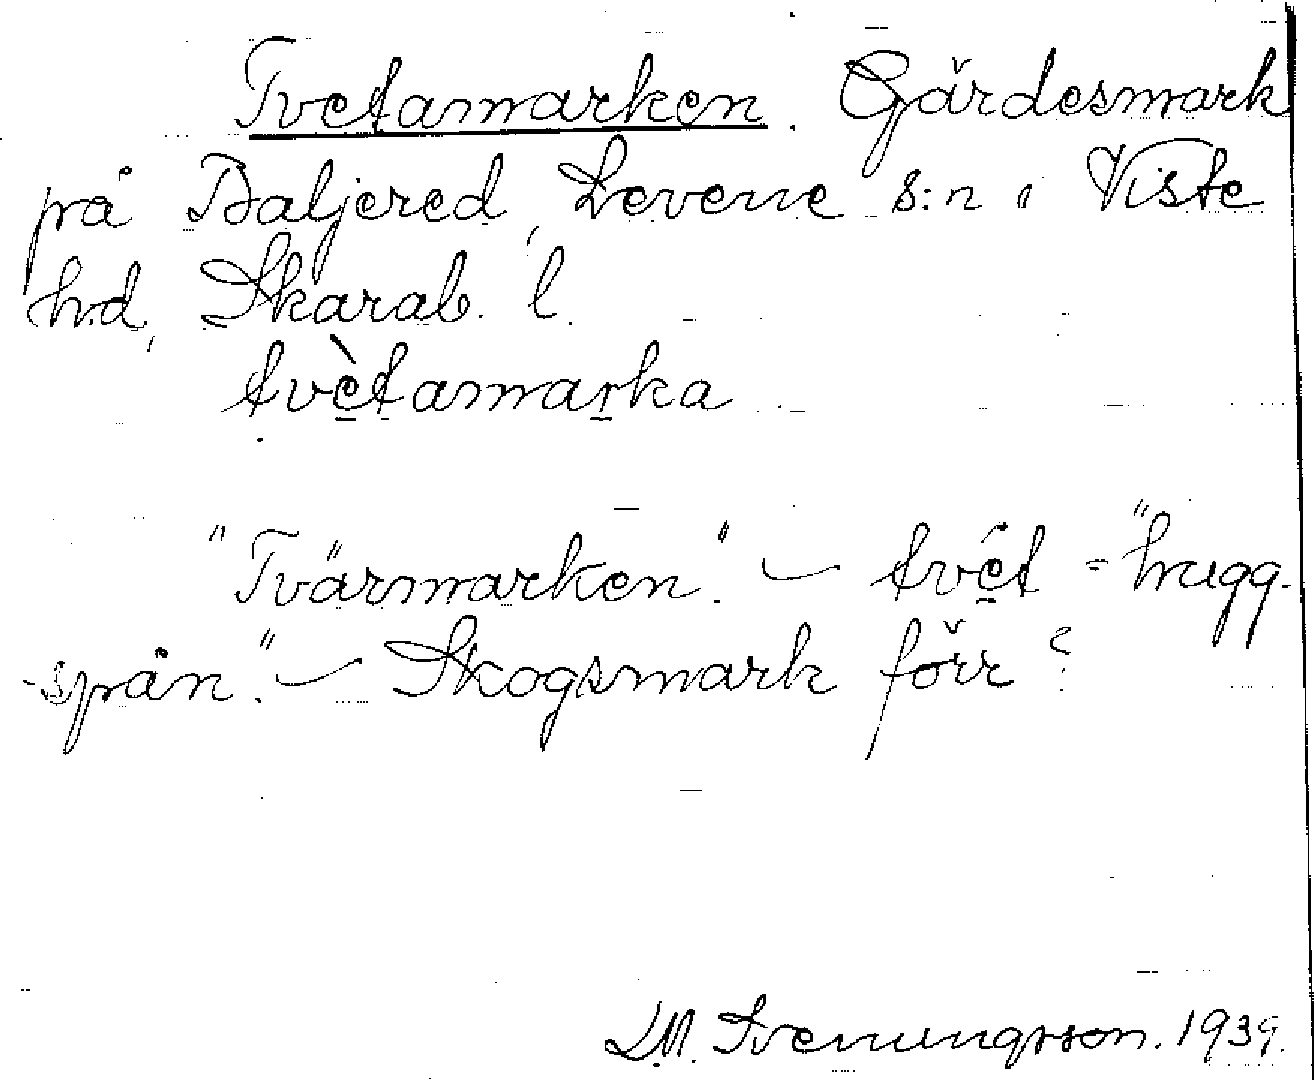 Tvetamarken. Gärdesmark
på Baljered, Levene s:n i Viste
hd, Skarab. l.
tvètamarka
"Tvärmarken". – tvét = "hugg-
-spån". – Skogsmark förr?
L.M. Svenungsson. 1939.